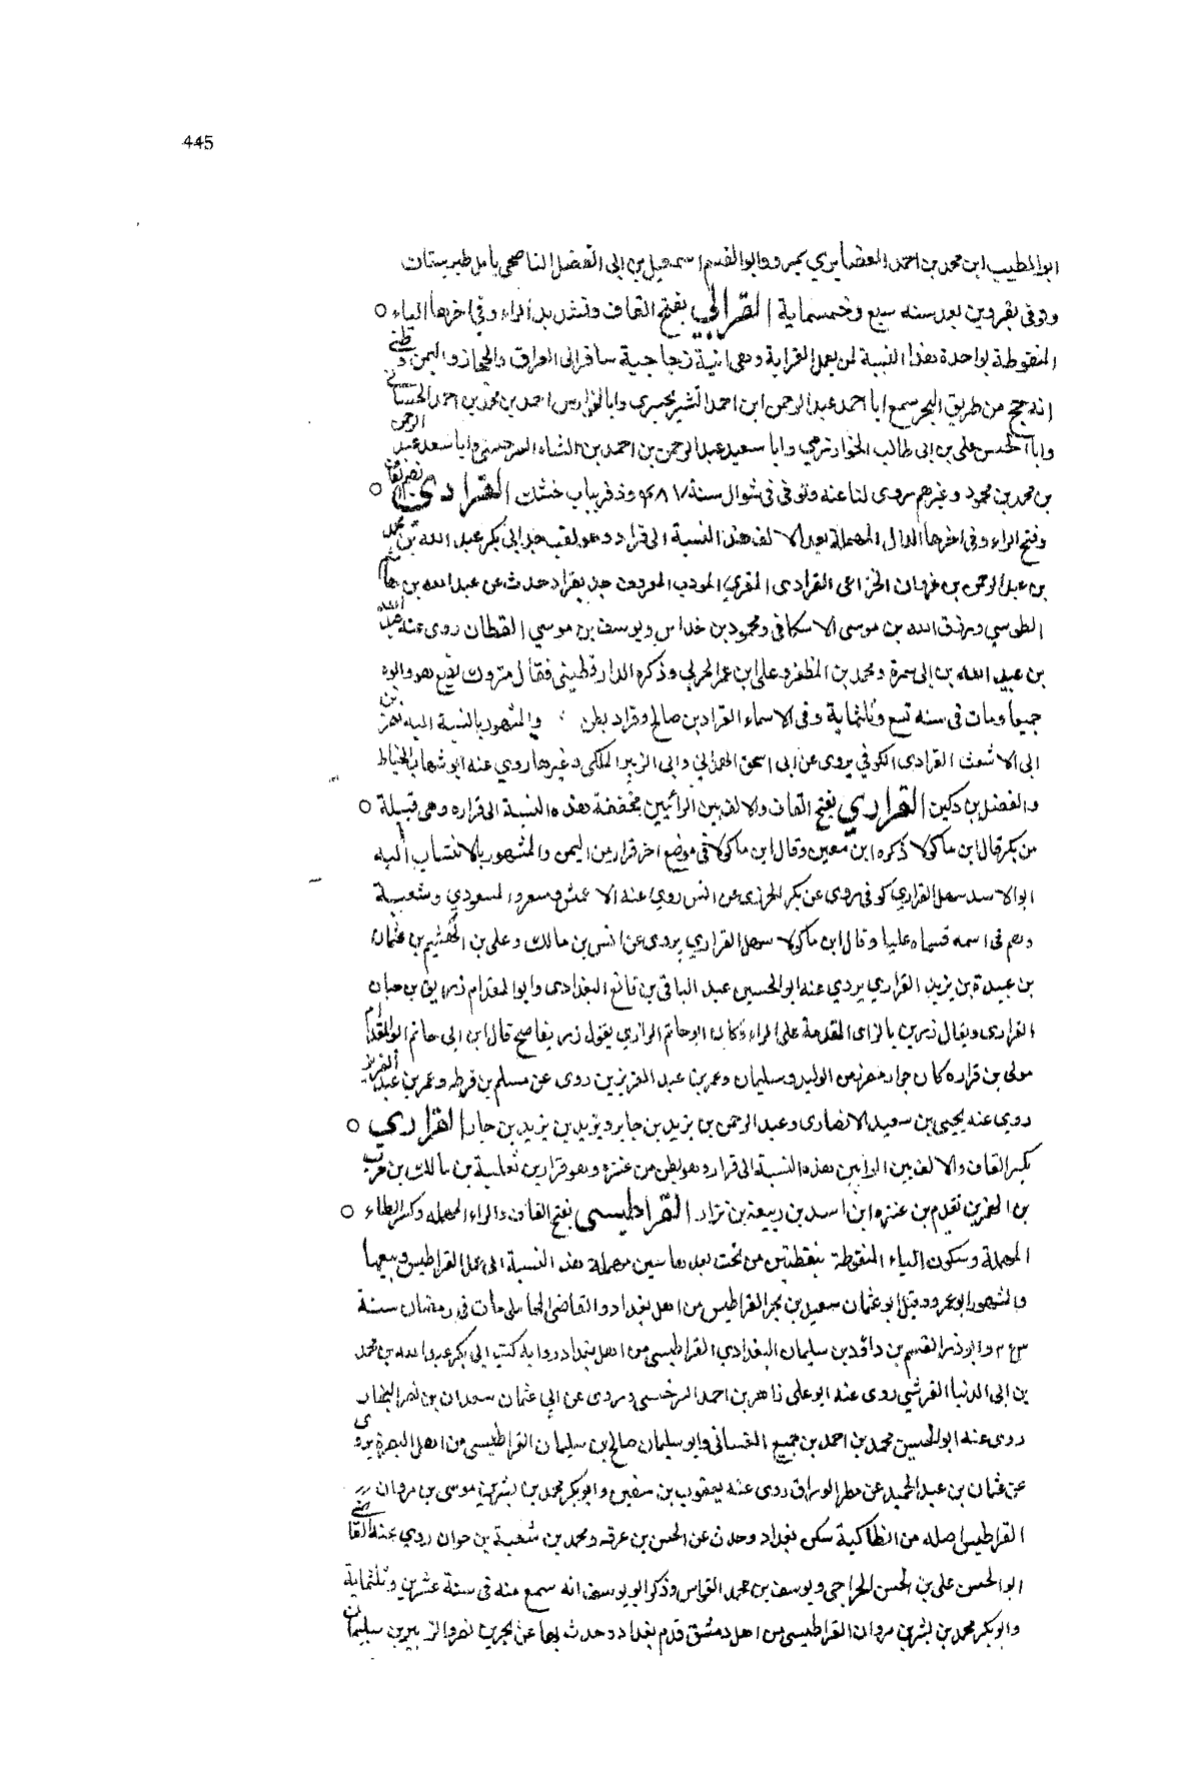 445
ابو الطيب ابن محمد بن احمد الغضايري بمرو وابو القسم اسمعيل بن ابى الفضل الناصحي بامل طبرستان
وتوفى بقزوين بعد سنه سبع وخمسماية القرابي بفتح القاف وتشديد الراء وفي اخرها الباء
المنقوطة بواحدة هذا النسبة لمن يعمل القرابة وهى انية زجاجية سافر الى العراق والحجاز واليمن
انه حج من طريق البحر سمع ابا احمد عبد الرحمن ابن احمد الشيرنخشيرى وابا الفوارس احمد بن محمد بن احمد
وابا الحسن على بن ابى طالب الخوارزمي وابا سعيد عبد الرحمن بن احمد بن الشاه السرخسى وابا سعد عبد الرحمن
بن محمد بن محمود وغيرهم روى لنا عنه وتوفى فى شوال سنة وذفر بباب خشك القرادي
وفتح الراء وفى اخرها الدال المهملة بعد الالف هذا النسبة الى قراد وهو لقب جد ابى بكر عبد الله بن محمد
بن عبد الرحمن بن غزوان الخزاعى القرادى المقري المودب المعروف جده بقراد حدث عن عبد الله بن هاشم
الطوسي ورزق الله بن موسى الاسكافى ومحمود بن خداس ويوسف بن موسي القطان روى عنه عبد الله
بن عبيد الله بن ابى سمرة ومحمد بن المظفر وعلى ابن عمر الحربي وذكره الدارقطنى فقال متروك يضع هو وابوه
جميعا ومات فى سنه تسع وثلثماية وفى الاسماء القراد بن صالح وقراد بطن والمشهور بالنسبة اليه نصر بن
ابى الاشعث القرادى الكوفي يروى عن ابى اسحق الهمداني وابى الزبير الملكى وغيرها روي عنه ابو شهاب الخياط
والفضل بن دكين القراري بفتح القاف والالف بين الرائيين مخففة هذه النسبة الى قراره وهى قبيلة
من بكر قال ابن ماكولا ذكره ابن معين وقال ابن ماكولا فى موضع اخر قرار من اليمن والمشهور بالانتساب اليه
ابو الاسد سهل القراري كوفى يروى عن بكر الجزرى عن انس روي عنه الاعمش ومسعر والمسعودي وشعبة
وهم فى اسمه فسماه عليا وقال ابن ماكولا سهل القراري يروى عن انس بن مالك وعلى بن الهيثم بن عثمان
بن عبيدة بن يزيد القراري يردي عنه ابو الحسين عبد الباقى بن قانع البغدادى وابو المقدام زريق بن حبان
القرارى ويقال زريق بالزاى المقدمة على الراء وكان ابو حاتم الرازي يقول زريق اصح قال ابن ابى حاتم ابو المقدام
مولى بن قراره كان جوار معز من الوليد وسليمان وعمر بن عبد العزيز بن روى عن مسلم بن قرظه وعمر بن عبد العزيز
روي عنه يحيى بن سعيد الانصارى وعبد الرحمن بن يزيد بن جابر ويزيد بن يزيد بن جابر القراري
بكسر القاف والالف بين الرايين هذه النسبة الى قرار وهو بطن من عنزه وهو قرار بن ثعلبة بن مالك بن حرب
بن الحرث بن يقدم بن عنزه ابن اسد بن ربيعة بن نزار القراطيسى بفتح القاف والراء المهمله وكسر الطاء
المهملة وسكون الياء المنقوطة بنقطتين من تحت بعدها سين مهملة هذه النسبة الى عمل القراطيس وبيعها
والمشهور ابو عمرو وقيل ابو عثمان سعيل بن بحر القراطيس من اهل بغداد والقاضى المحاملى مات فى رمضان سنة
وابو ذر القسم بن داود بن سليمان البغدادي القراطيسى من اهل بغداد رواية كتب ابى بكر عبد الله بن محمد
بن ابى الدنيا القرشي روى عنه ابو على زاهر بن احمد السرخسى ويروى عن ابي عثمان سعدان بن نصر البخار
روى عنه ابو الحسين محمد بن احمد بن جميع الغسانى وابو سليمان صالح بن سليمان القراطيسى من اهل البصرة يروى
عن عثمان بن عبد الحميد عن مطر الوراق روى عنه يعقوب بن سفين وابو بكر محمد بن بشر بن موسى بن مروان
القراطيسى اصله من انطاكية سكن بغداد وحدث عن الحسن بن عرفه ومحمد بن شعبة بن جوان روي عنه القاضى
ابو الحسن على بن الحسن الجراحى ويوسف بن عمر القواس وذكر ابو يوسف انه سمع منه فى سنة عشرين وثلثماية
وابو بكر محمد بن بشر بن مروان القراطيسى من اهل دمشق قدم بغداد وحدث بها عن بحر بن نصر والربيع بن سليمان